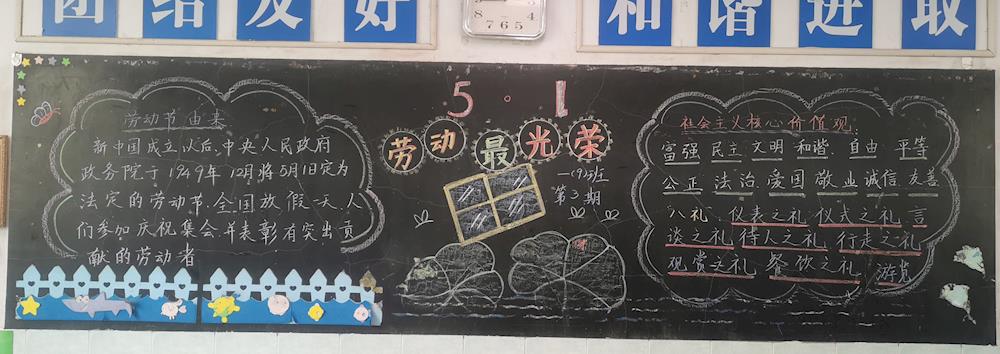 团结友好
和谐进取
9
3
8
4
7 6 5
5·1
劳动最光荣
一(9)班
第3期
劳动节由来
新中国成立以后,中央人民政府
政务院于1949年12月将5月1日定为
法定的劳动节,全国放假一天,人
们参加庆祝集会,并表彰有突出贡
献的劳动者
社会主义核心价值观
富强 民主 文明 和谐 自由 平等
公正 法治 爱国 敬业 诚信 友善
“八礼”:仪表之礼 仪式之礼 言
谈之礼 待人之礼 行走之礼
观赏之礼 餐饮之礼 游览